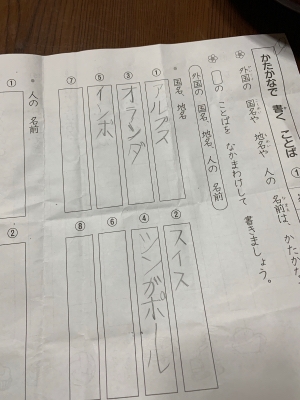 かたかなで 書く ことば ①
※ 外国の 国名や 地名や 人の 名前は、かたか
※ □の ことばを なかまわけして 書きましょう。
外国の 国名、地名、人の 名前
・国名、地名
① アルプス
② スイス
③ オランダ
④ シンガポール
⑤
⑥
⑦
⑧
・人の 名前
①
②